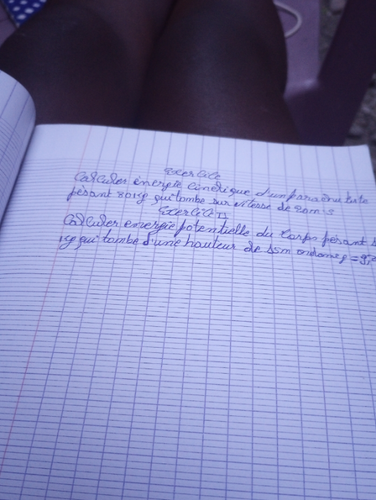 Exercice
Calculer énergie cinétique d'un parachutiste
pésant 80kg qui tombe sur vitesse de 20m.s
Exercice II
Calculer energie potentielle du Corps pésant
kg qui tombe d'une hauteur de